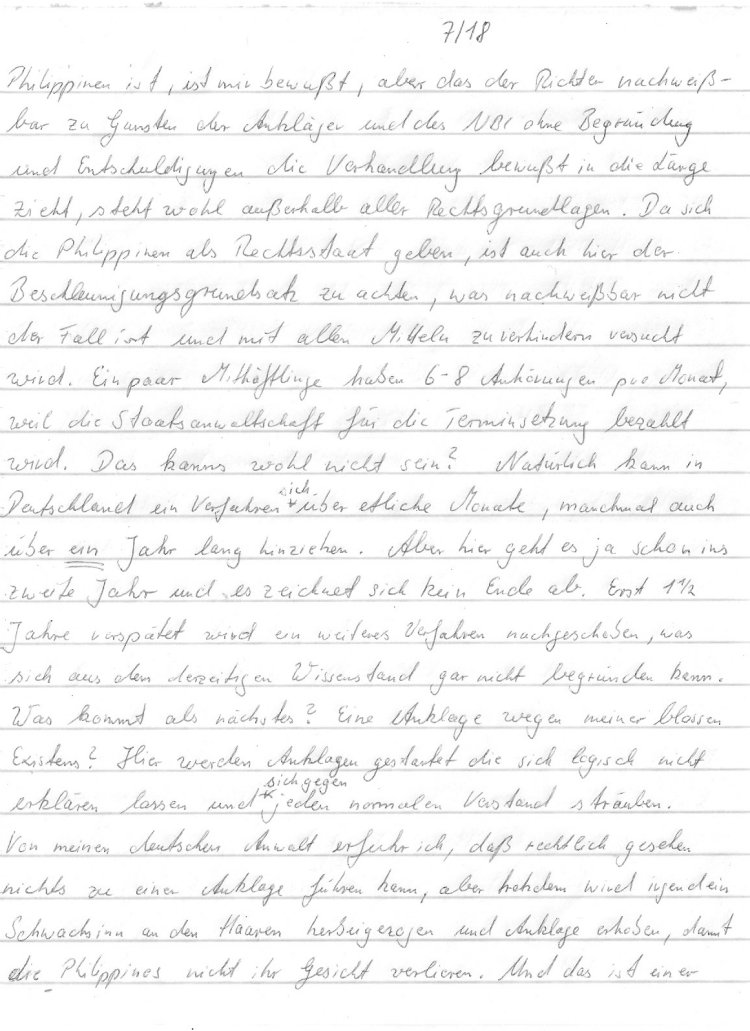 7/18
Philippinen ist, ist mir bewußt, aber das der Richter nachweiß-
bar zu Gunsten der Ankläger und des NBI ohne Begründung
und Entschuldigungen die Verhandlung bewußt in die Länge
zieht, steht wohl außerhalb aller Rechtsgrundlagen. Da sich
die Philippinen als Rechtsstaat geben, ist auch hier der
Beschleunigungsgrundsatz zu achten, was nachweißbar nicht
der Fall ist und mit allen Mitteln zu verhindern versucht
wird. Ein paar Mithäftlinge haben 6-8 Anhörungen pro Monat,
weil die Staatsanwaltschaft für die Terminsetzung bezahlt
wird. Das kanns wohl nicht sein? Natürlich kann in
Deutschland ein Verfahren sich über etliche Monate, manchmal auch
über ein Jahr lang hinziehen. Aber hier geht es ja schon ins
zweite Jahr und es zeichnet sich kein Ende ab. Erst 1 1/2
Jahre verspätet wird ein weiteres Verfahren nachgeschoben, was
sich aus dem derzeitigen Wissenstand gar nicht begründen kann.
Was kommt als nächstes? Eine Anklage wegen meiner blossen
Existens? Hier werden Anklagen gestartet die sich logisch nicht
erklären lassen und sich gegen jeden normalen Verstand sträuben.
Von meinen deutschen Anwalt erfuhr ich, daß rechtlich gesehen
nichts zu einer Anklage führen kann, aber trotzdem wird irgendein
Schwachsinn an den Haaren herbeigezogen und Anklage erhoben, damit
die Philippines nicht ihr Gesicht verlieren. Und das ist einer